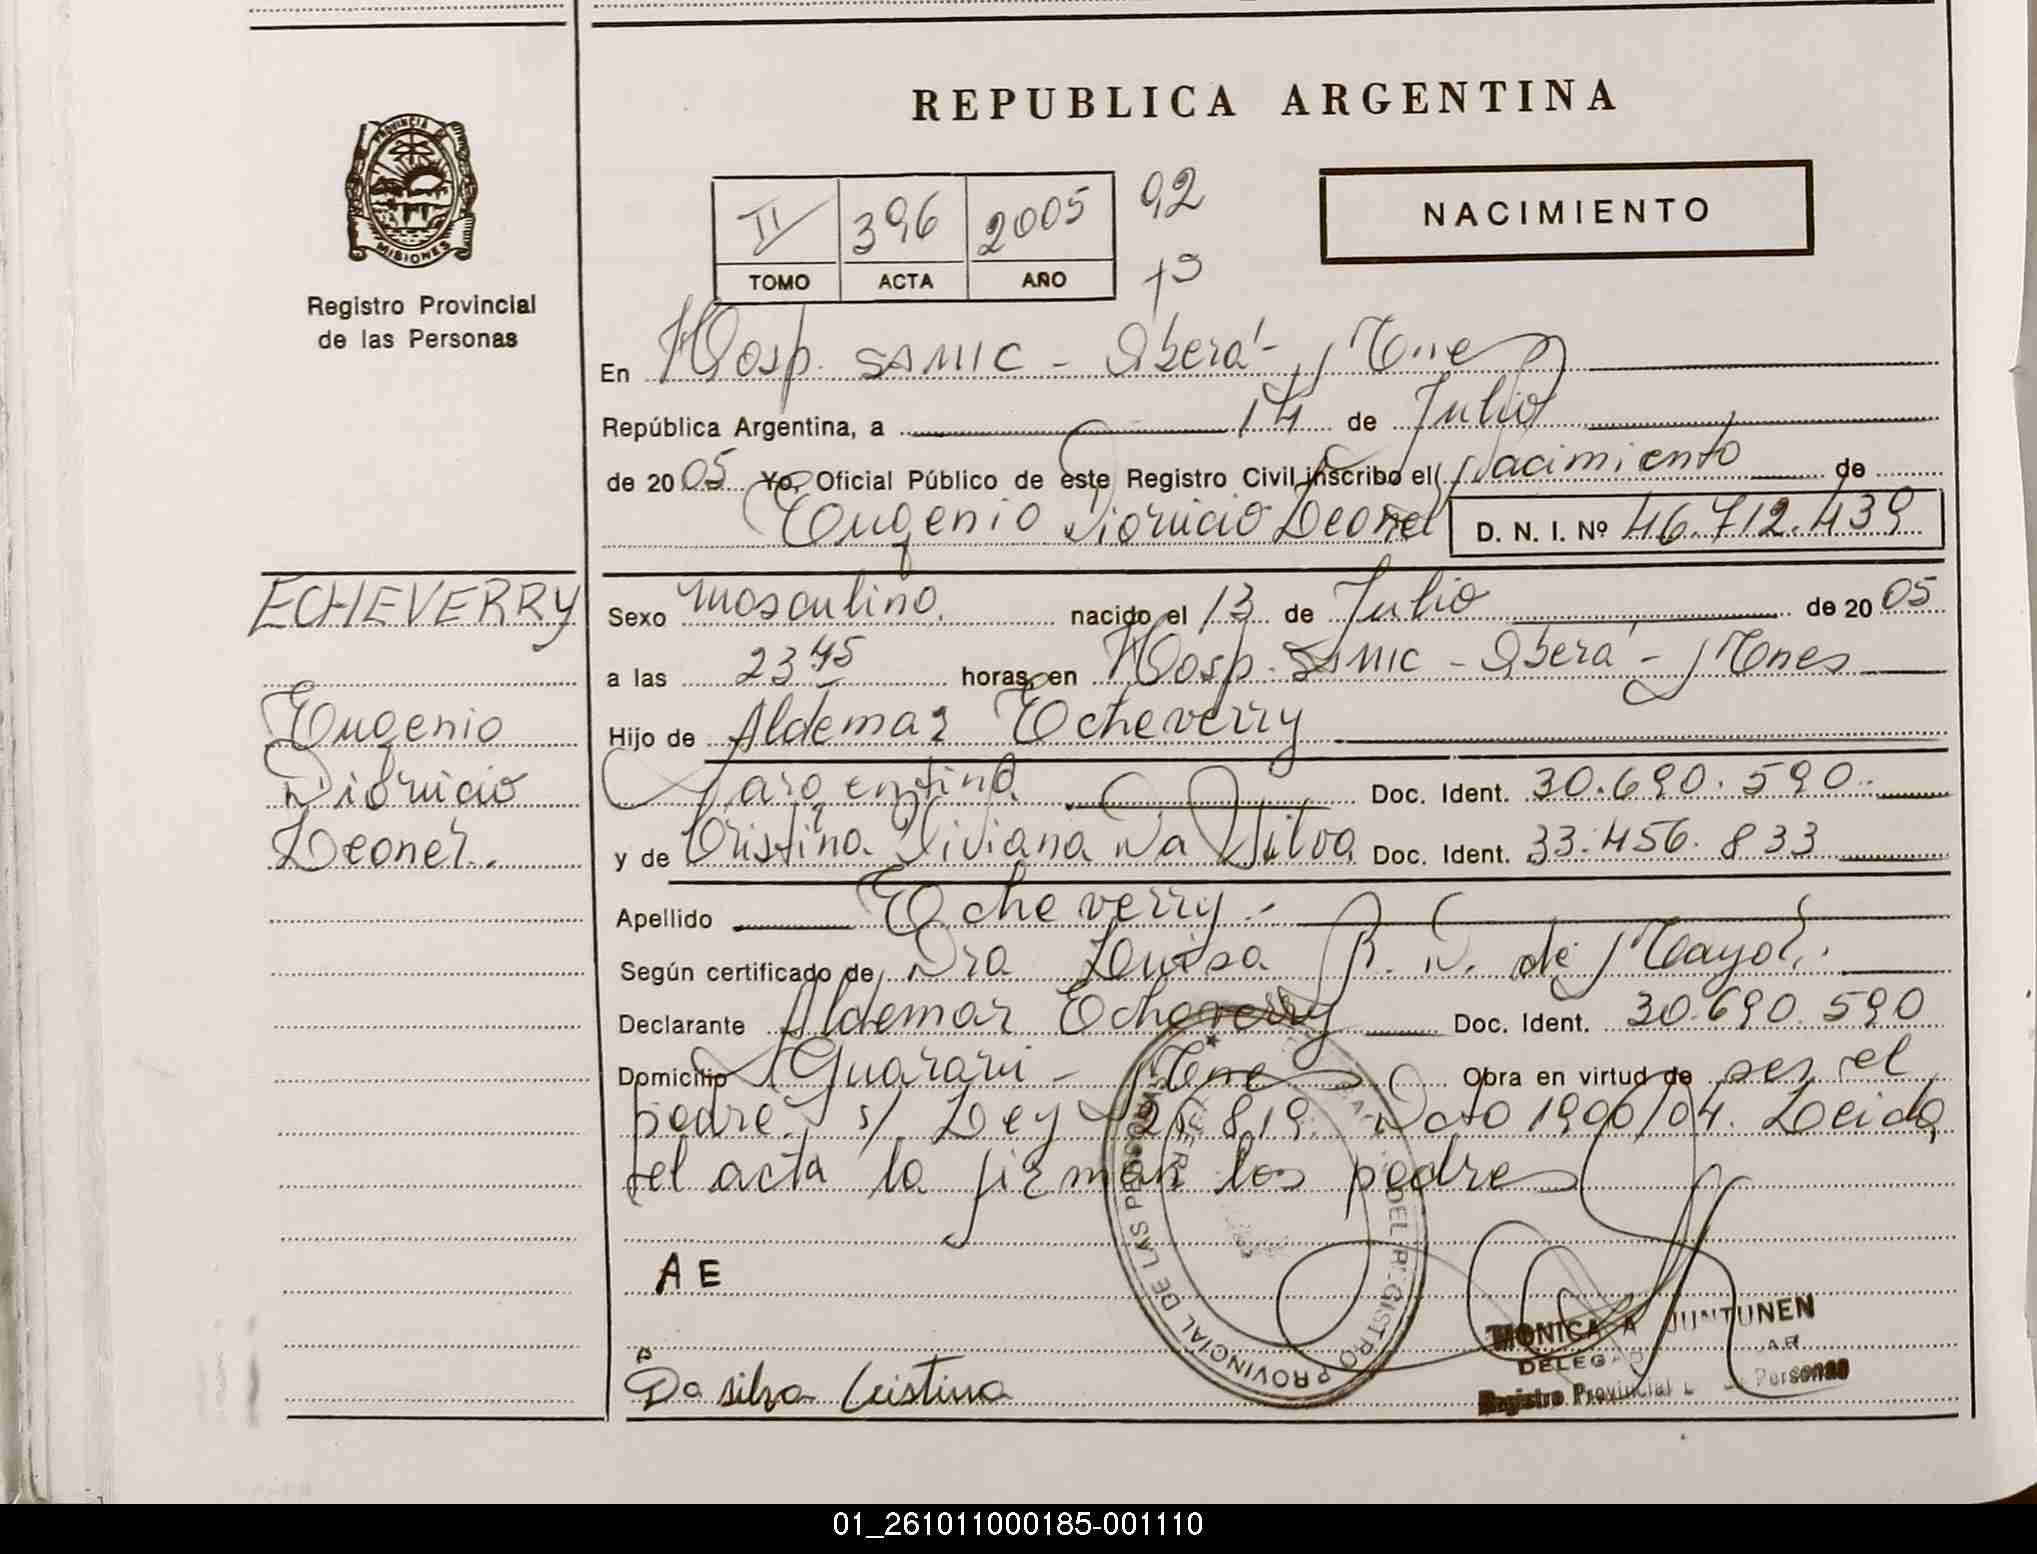 REPUBLICA ARGENTINA
PROVINCIA DE
MISIONES
Registro Provincial
de las Personas
II 396 2005 92
TOMO ACTA AÑO 13
NACIMIENTO
En Hosp. SAMIC - Oberá - Mnes
República Argentina, a 14 de Julio
de 2005 Yo, Oficial Público de este Registro Civil inscribo el Nacimiento de
Eugenio Leonel D. N. I. Nº 46.712.439
ECHEVERRY
Eugenio
Leonel.
Sexo masculino. nacido el 13 de Julio de 2005
a las 23 45 horas, en Hosp. SAMIC - Oberá - Mnes
Hijo de Aldemar Echeverry
Argentina Doc. Ident. 30.690.590.
y de Cristina Viviana Da Silva Doc. Ident. 33.456.833
Apellido Echeverry.-
Según certificado de Dra Luisa R. D. de Mayol.
Declarante Aldemar Echeverry Doc. Ident. 30.690.590
Domicilio Guaraní - Mnes Obra en virtud de ser el
padre. s/ Ley 25.819. Dcto 1900/04. Leida
el acta la firman los padres
A E
Da silva Cristina
PROVINCIAL DE LAS
DEL REGISTRO
MONICA A JUNTUNEN
Registro Provincial Personas
01_261011000185-001110